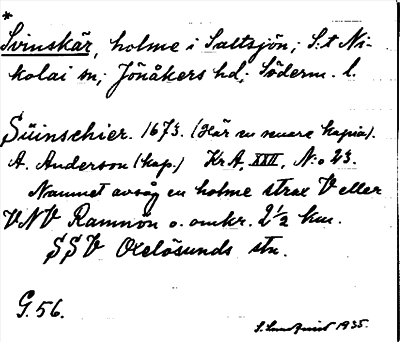 *
Svinskär, holme i Saltsjön; S:t Ni-
kolai sn; Jönåkers hd; Söderm. l.
Süinschier. 1673. (Här en nuare kopia).
A. Anderson (kop.) KrA, XXII, N:o 23.
Namnet avsåg en holme strax V eller
VNV Ramnön o. omkr. 2 1/2 km.
SSV Oxelösunds stn.
G. 56.
S. Lundquist 1935.